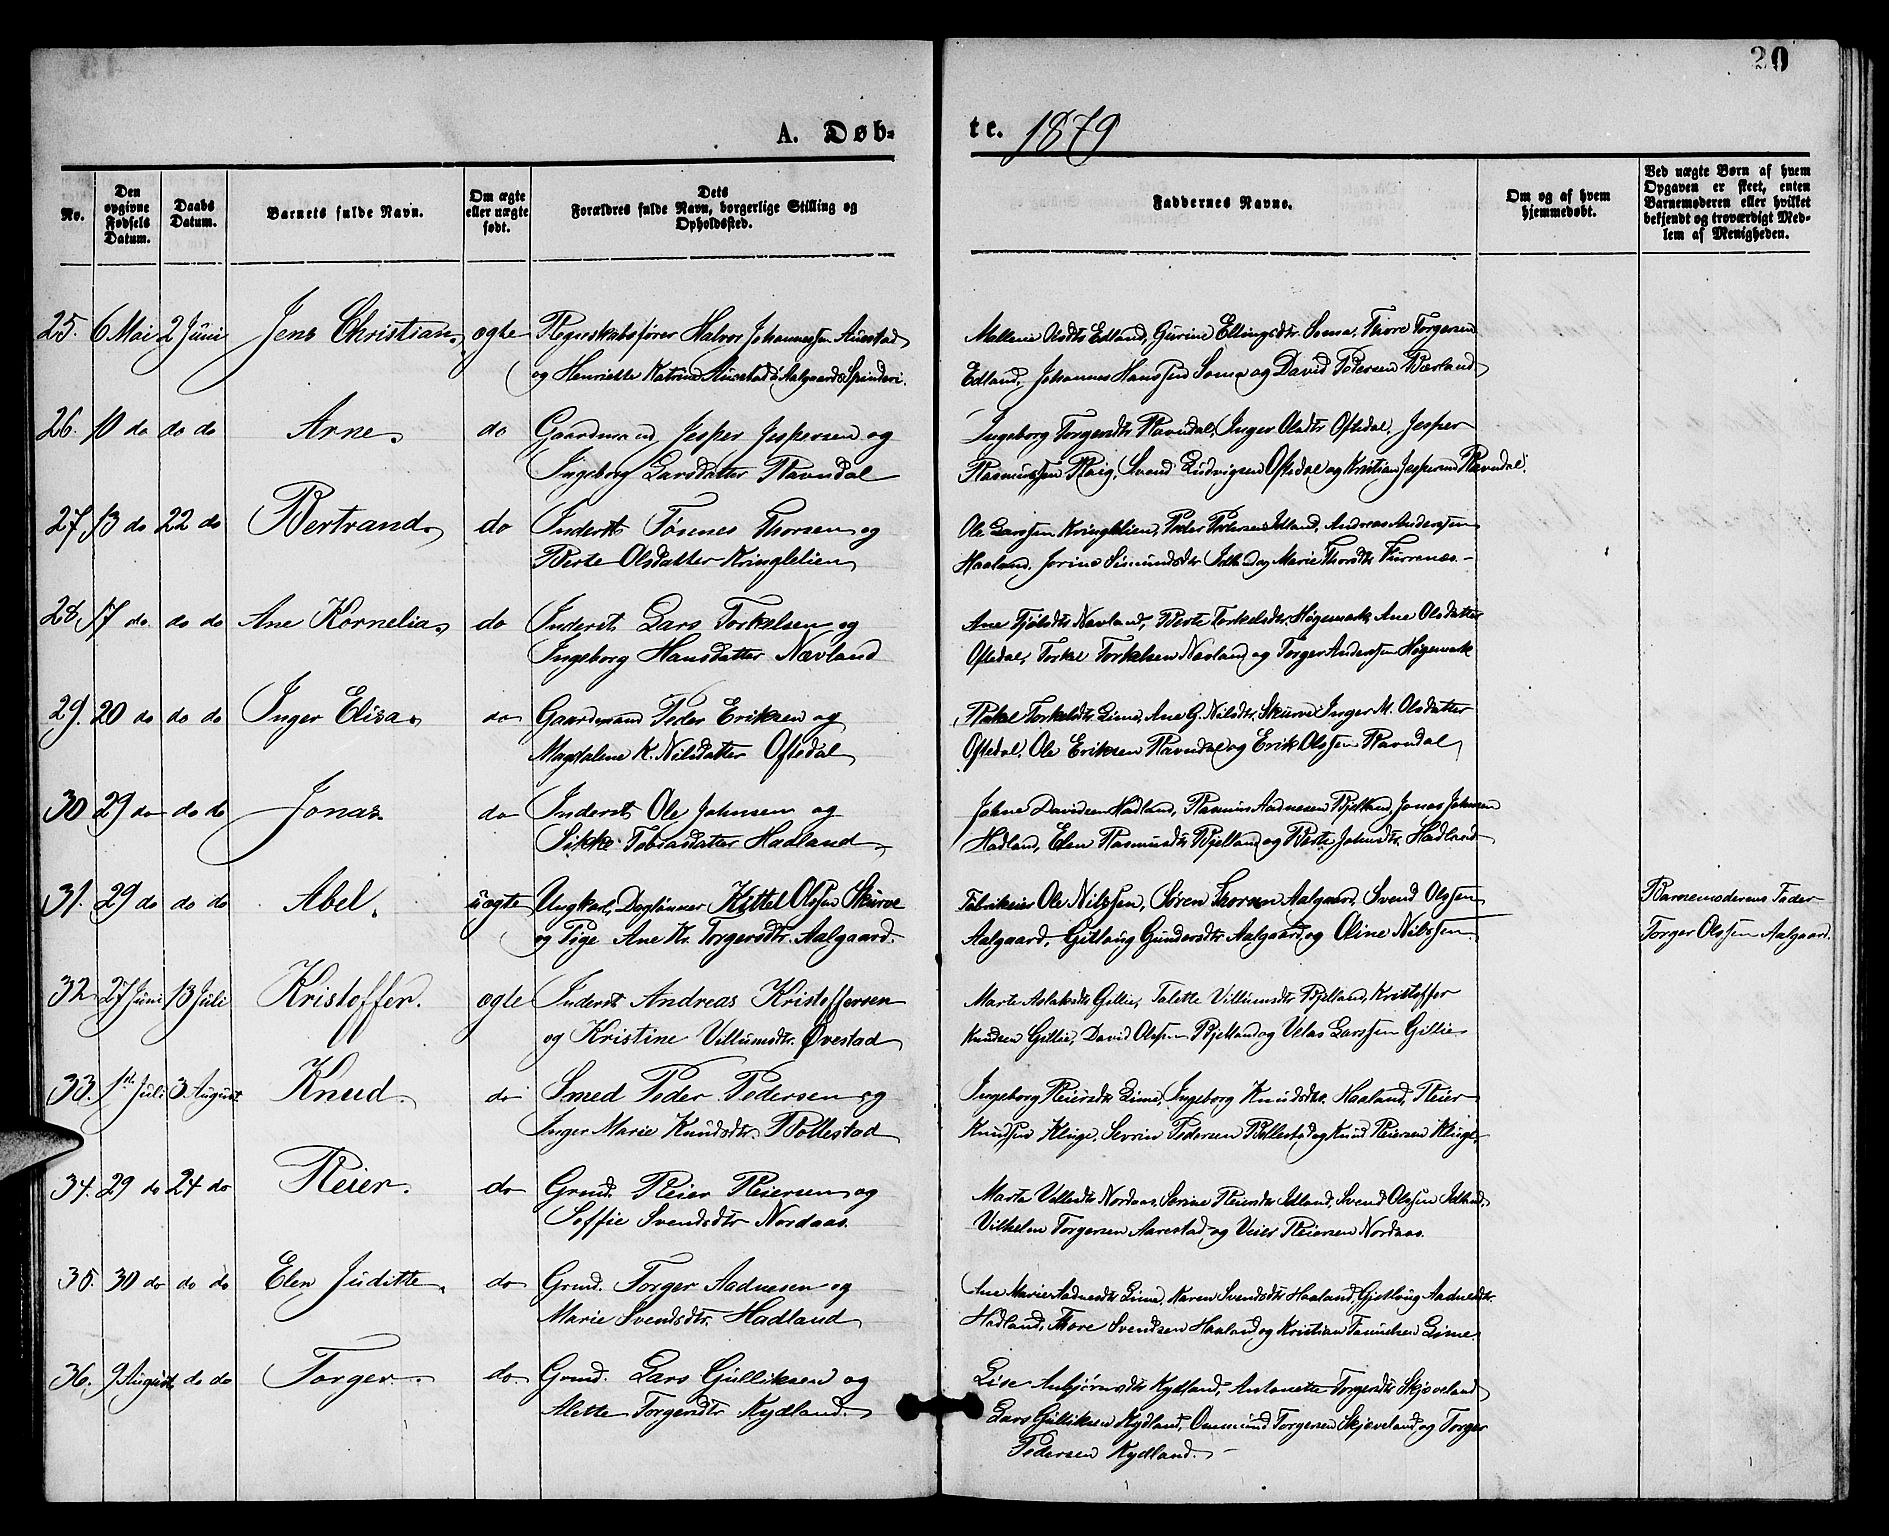 20
A. Døb-
te. 1879
No.
Den opgivne Fødsels Datum.
Daabs Datum.
Barnets fulde Navn.
Om ægte eller uægte født.
Dets Forældres fulde Navn, borgerlige Stilling og Opholdssted.
Faddernes Navne.
Om og af hvem hjemmedøbt.
Ved uægte Børn af hvem Opgaven er skeet, enten Barnemoderen eller hvilket bekjendt og troværdigt Medlem af Menigheden.
25. 6 Mai 2 Juni Jens Christian. ægte Regnskabsfører Halvor Johannessen Auestad
og Henriette Katrine Auestad Aalgaards Spinderi.
Mallene Olsdtr Edland, Gurine Ellingsdtr. Soma, Thore Torgersen
Edland, Johannes Hanssen Soma og David Pedersen Bærland
26. 10 do do do Arne. do Gaardmand Jesper Jespersen og
Ingeborg Larsdatter Ravndal
Ingeborg Torgersdtr Ravndal, Inger Olsdtr Oftedal, Jesper
Rasmussen Røig, Svend Ludvigsen Oftedal og Kristian Jespersen Ravndal.
27. 13 do 22 do Bertrand. do Inderst Tønnes Thorsen og
Berte Olsdatter Kringlelien
Ole Larssen Kringlelien, Peder Pedersen Idland, Andreas Anderssen
Haaland, Jorine Simundsdtr Idland og Marie Thorsdtr Furrenæs.
28. 17 do do do Ane Kornelia. do Inderst Lars Torkelsen og
Ingeborg Hansdatter Nævland
Ane Tjølsdtr Navland, Berte Torkelsdtr Høgemark, Ane Olsdatter
Oftedal, Torkel Torkelsen Navland og Torger Anderssen Høgemark
29. 20 do do do Inger Elisa. do Gaardmand Peder Eriksen og
Magdalene K. Nilsdatter Oftedal
Rakel Torkelsdtr. Lima, Ane G. Nilsdtr. Skurve, Inger M. Olsdatter
Oftedal, Ole Eriksen Ravndal og Erik Olssen Ravndal
30 29 do do do Jonas. do Inderst Ole Johnsen og
Sikke Tobiasdatter Hadland
Johne Davidsen Hadland, Rasmus Aadnesen Bjelland, Jonas Johnsen
Hadland, Elen Rasmusdtr Bjelland og Berte Johnsdtr. Hadland
31. 29 do do do Abel. uægte Ungkarl, Daglønner Kittel Olssen Skurve
og Pige Ane Kr. Torgersdtr. Aalgaard.
Fabrikeier Ole Nilssen, Søren Thorsen Aalgaard, Svend Olssen
Aalgaard, Gitlaug Gundersdtr Aalgaard og Oline Nilssen.
Barnemoderens Fader
Torger Olssen Aalgaard.
32 27 Juni 13 Juli Kristoffer. ægte Inderst Andreas Kristoffersen
og Kristine Villumsdtr. Øvestad
Marte Aslaksdtr Gillie, Talette Villumsdtr Bjelland, Kristoffer
Knudsen Gillie, David Olssen Bjelland og Velas Larssen Gillie
33. 1ste Juli 3 August Knud. do Smed Peder Pedersen og
Inger Marie Knudsdtr. Bollestad
Ingeborg Reiersdtr Lima, Ingeborg Knudsdtr. Haaland, Reier
Knudsen Kluge, Sevrin Pedersen Bollestad og Knud Reiersen Kluge
34. 29 do 24 do Reier. do Grmd. Reier Reiersen og
Soffie Svendsdtr Nordaas.
Marta Vellesdtr Nordaas, Serine Reiersdtr Idland, Svend Olssen Idland,
Vilhelm Torgersen Aarestad og Veier Reiersen Nordaas.
35. 30 do do do Elen Juditte. do Grmd. Torger Aadnesen og
Marie Svendsdtr. Hadland
Ane Marie Aadnesdtr Lima, Karen Svendsdtr Haaland, Gjetlaug Aadnesdtr.
Hadland, Thore Svendsen Haaland og Kristian Tønnesen Lima
36. 9 August do do Torger. do Grmd. Lars Gulliksen og
Alette Torgersdtr Kydland.
Lise Anbjørnsdtr Kydland, Antonette Torgersdtr Skjæveland
Lars Gulliksen Kydland, Ommund Torgersen Skjæveland og Torger
Pedersen Kydland.